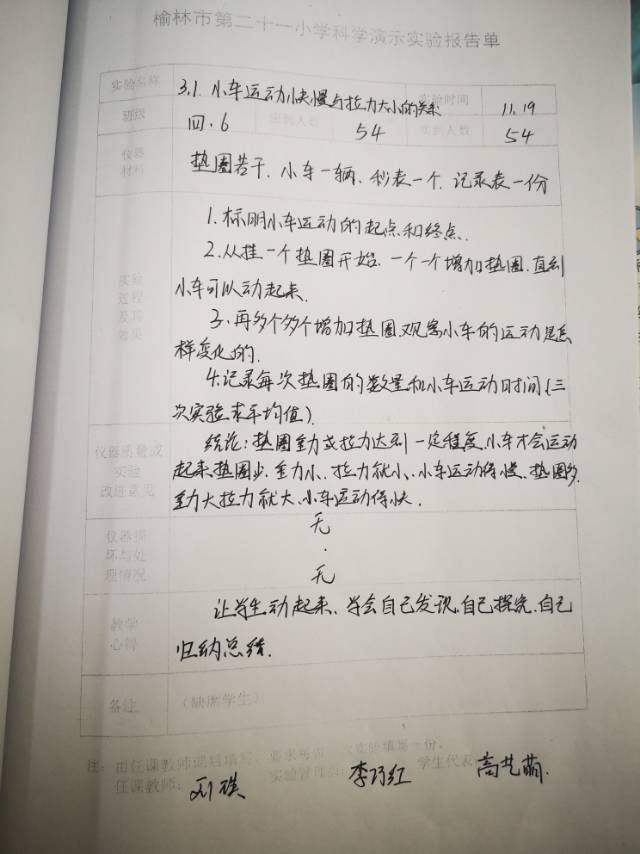 榆林市第二十一小学科学演示实验报告单
实验名称 3.1.小车运动快慢与拉力大小的关系 实验时间 11.19
班级 四.6 应到人数 54 实到人数 54
仪器
材料
垫圈若干、小车一辆、秒表一个、记录表一份
实验
过程
及其
效果
1.标明小车运动的起点和终点.
2.从挂一个垫圈开始.一个一个增加垫圈.直到
小车可以动起来.
3.再多个多个增加垫圈.观察小车的运动是怎
样变化的.
4.记录每次垫圈的数量和小车运动时间(三
次实验求平均值).
结论:垫圈重力或拉力达到一定程度.小车才会运动
起来.垫圈少.重力小、拉力就小、小车运动得慢、垫圈多.
重力大拉力就大、小车运动得快.
仪器质量或
实验
改进意见
仪器损
坏与处
理情况
无
无
教学
心得
让学生动起来、学会自己发现.自己探究.自己
归纳总结.
备注 (缺席学生)
注:由任课教师课后填写、要求每做一次实验填写一份。
任课教师: 实验管理员:李巧红 学生代表:高艺萌.